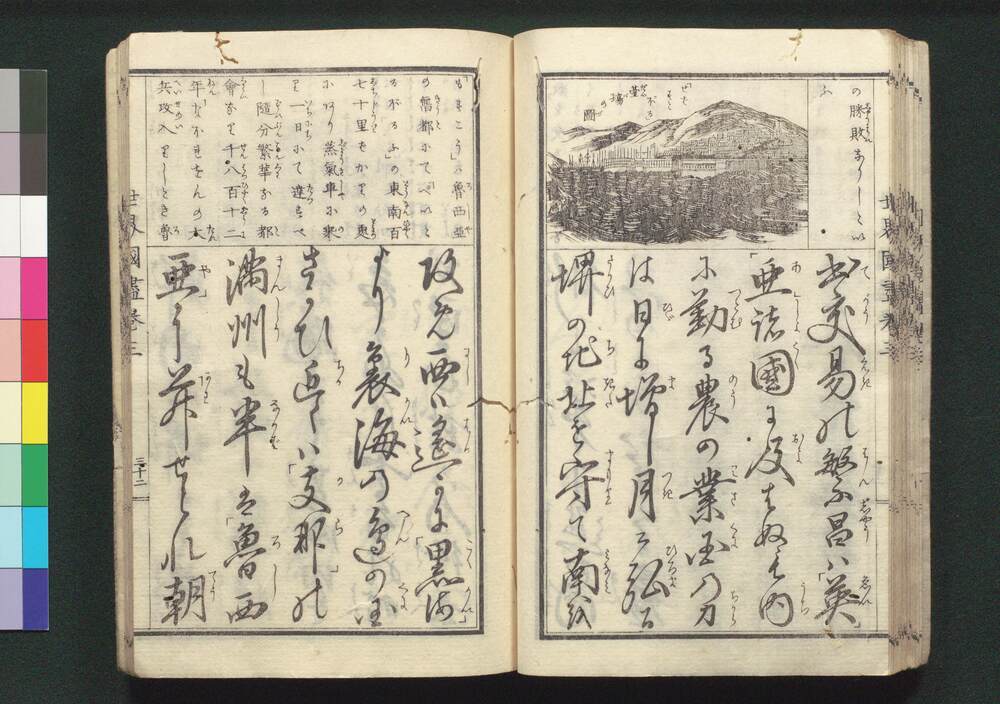 の勝敗ありしとい
ふ
せばすとぽる臺場の圖
出交易の繁昌は「英」
「亜諸國に及はぬも内
に勤る農の業国の力
は日に増し月に弘る
堺の地北を守て南を
もすこう」の魯西亜
の舊都にて「ぺいと
るぶるふ」の東南百
七十里もかりの處
にあり蒸氣車に乗
り一日にて達すべ
し隨分繁華なる都
會なり千八百十二
年なぽれをんの大
兵攻入りしとき魯
攻め西は遥に「黒海」
より裏海の邊の国
さかひ近くは「支那」の
満州も半は「魯西
亜」に并せられ朝
世界國盡巻三
三十二